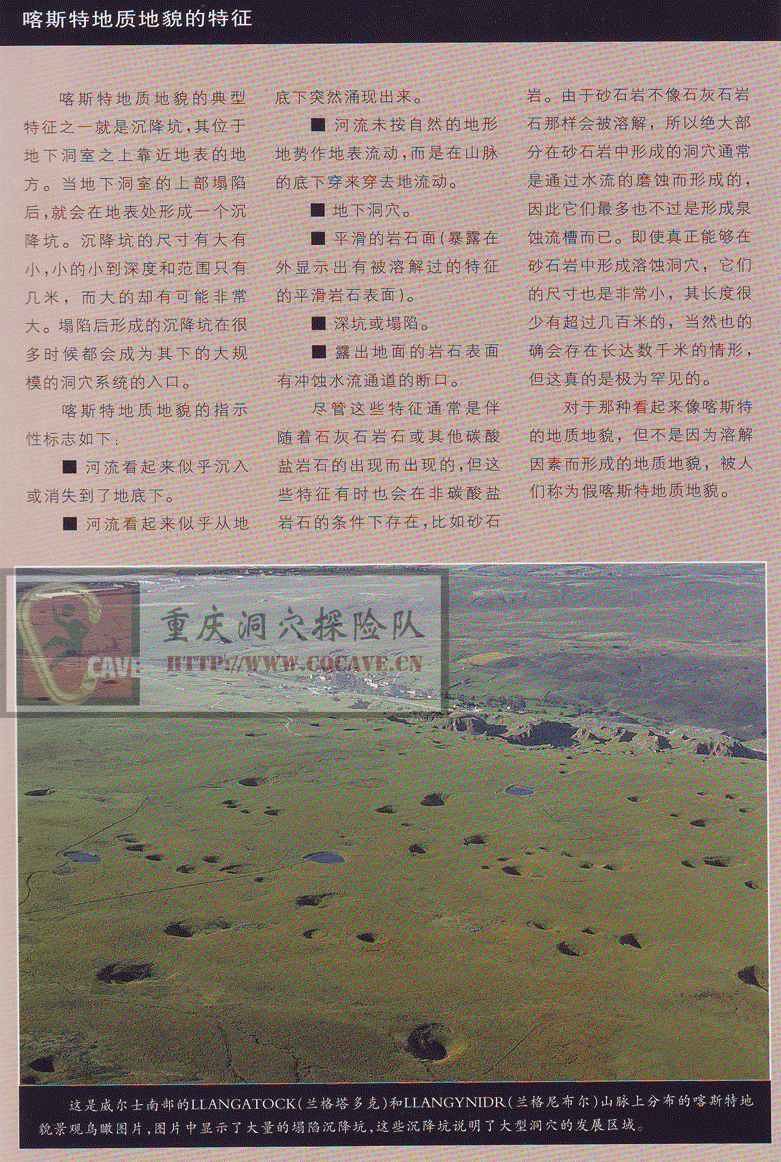 喀斯特地质地貌的特征
喀斯特地质地貌的典型
特征之一就是沉降坑,其位于
地下洞室之上靠近地表的地
方。当地下洞室的上部塌陷
后,就会在地表处形成一个沉
降坑。沉降坑的尺寸有大有
小,小的小到深度和范围只有
几米，而大的却有可能非常
大。塌陷后形成的沉降坑在很
多时候都会成为其下的大规
模的洞穴系统的入口。
喀斯特地质地貌的指示
性标志如下:
■ 河流看起来似乎沉入
或消失到了地底下。
■ 河流看起来似乎从地
底下突然涌现出来。
■ 河流未按自然的地形
地势作地表流动,而是在山脉
的底下穿来穿去地流动。
■ 地下洞穴。
■ 平滑的岩石面(暴露在
外显示出有被溶解过的特征
的平滑岩石表面)。
■ 深坑或塌陷。
■ 露出地面的岩石表面
有冲蚀水流通道的断口。
尽管这些特征通常是伴
随着石灰石岩石或其他碳酸
盐岩石的出现而出现的,但这
些特征有时也会在非碳酸盐
岩石的条件下存在,比如砂石
岩。由于砂石岩不像石灰石岩
石那样会被溶解，所以绝大部
分在砂石岩中形成的洞穴通常
是通过水流的磨蚀而形成的，
因此它们最多也不过是形成泉
蚀流槽而已。即使真正能够在
砂石岩中形成溶蚀洞穴，它们
的尺寸也是非常小，其长度很
少有超过几百米的，当然也的
确会存在长达数千米的情形，
但这真的是极为罕见的。
对于那种看起来像喀斯特
的地质地貌，但不是因为溶解
因素而形成的地质地貌，被人
们称为假喀斯特地质地貌。
CAVE
重庆洞穴探险队
HTTP://WWW.CQCAVE.CN
这是威尔士南部的LLANGATOCK(兰格塔多克)和LLANGYNIDR(兰格尼布尔)山脉上分布的喀斯特地
貌景观鸟瞰图片,图片中显示了大量的塌陷沉降坑,这些沉降坑说明了大型洞穴的发展区域。